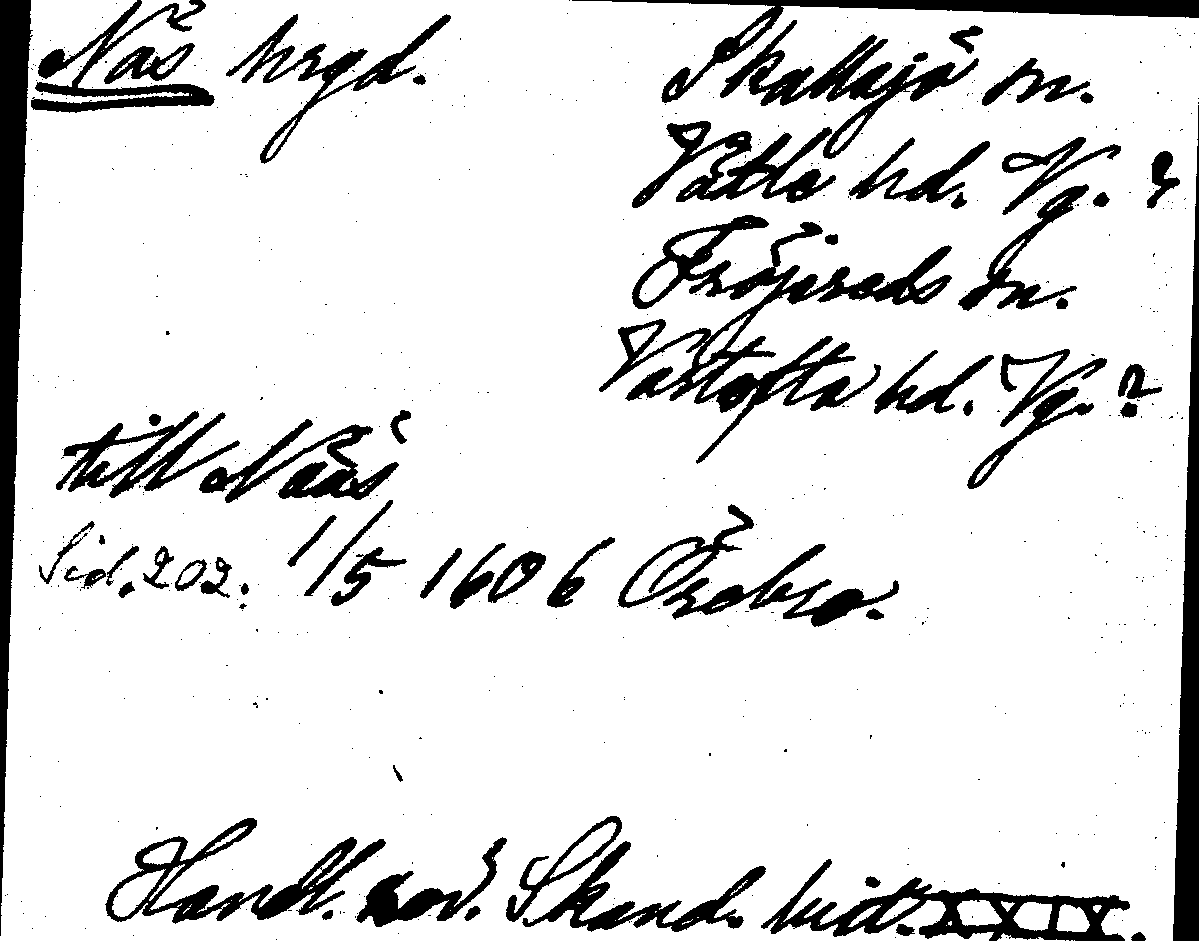 Näs hrgd.
Skallsjö sn.
Vättle hd. Vg. ?
Fröjereds sn.
Vartofta hd. Vg. ?
till Nääs
Sid. 202. 1/5 1606 Örebro.
Handl. rör. Skand. hist. XXIX.